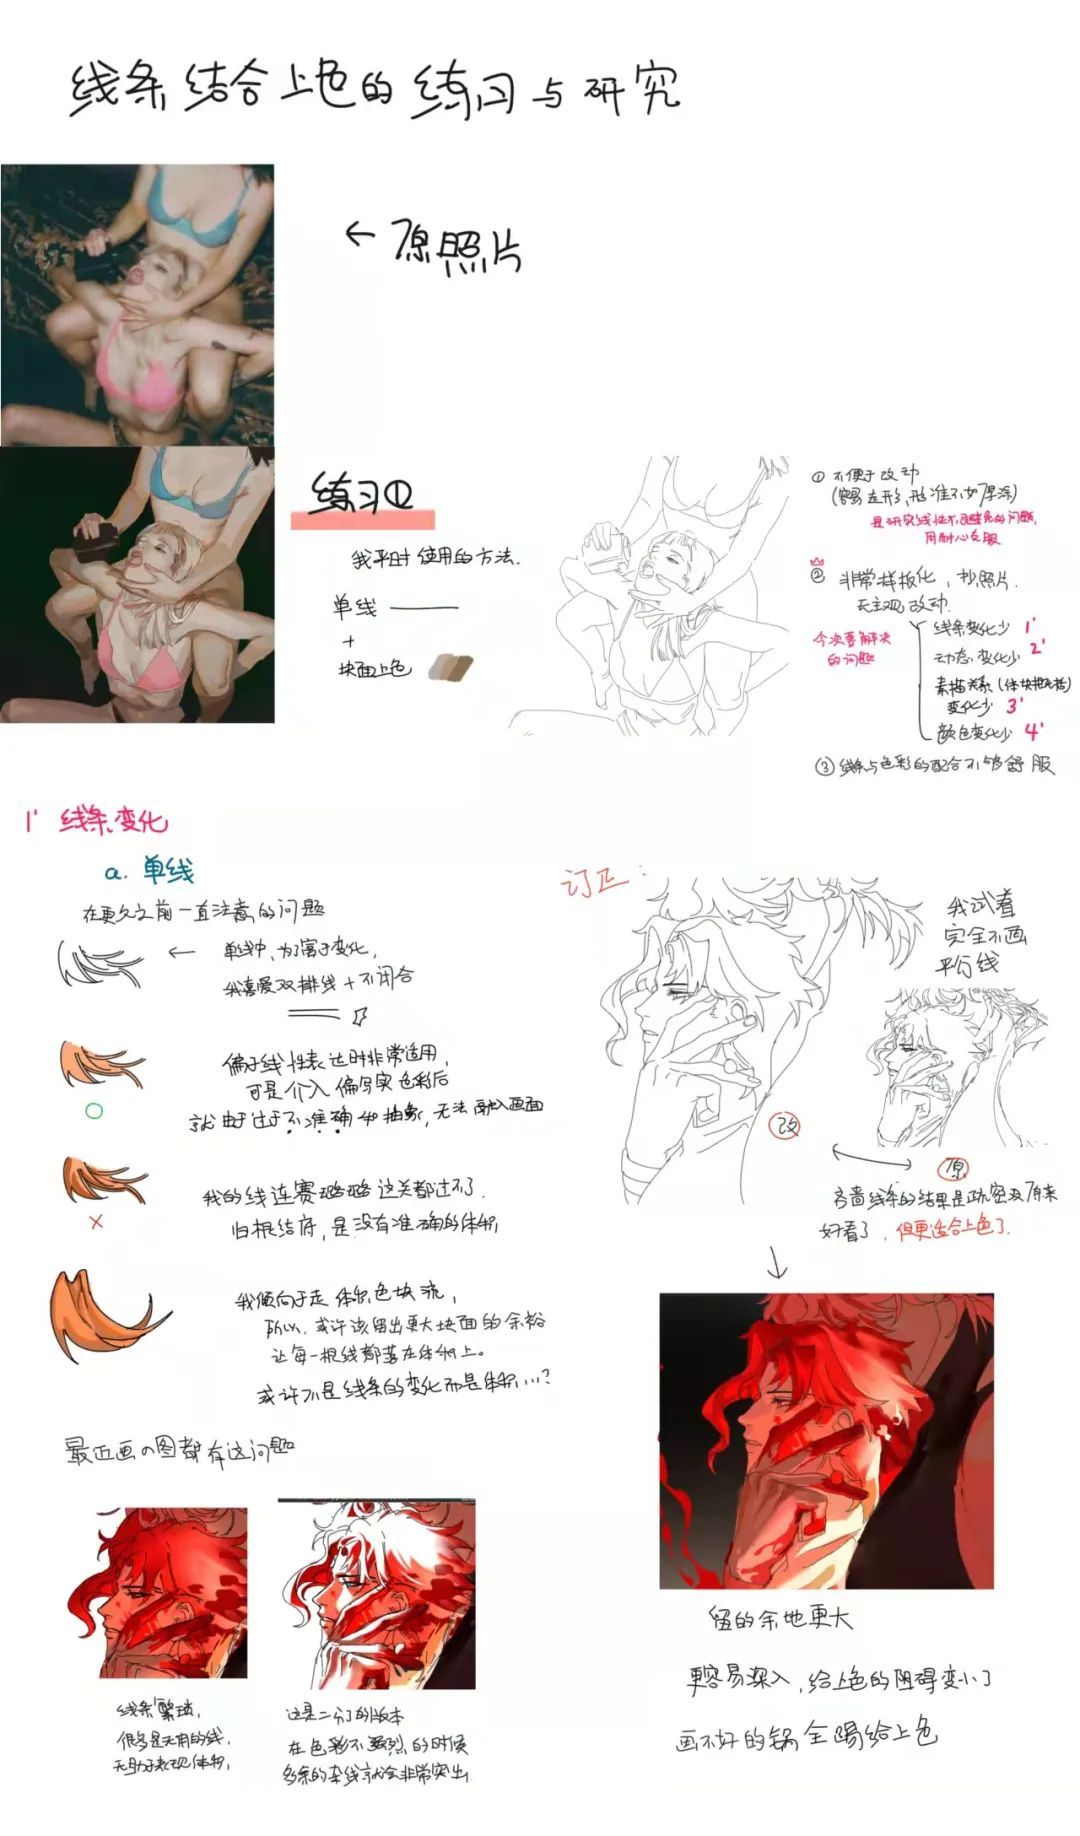 线条结合上色的练习与研究
← 原照片
练习①
我平时使用的方法.
单线
+
块面上色
① 不便于改动
(容易走形,形准不如厚涂)
是研究线性不可避免的问题,
用耐心克服
② 非常样板化,抄照片.
无主观改动.
今次要解决
的问题
线条变化少 1'
动态变化少 2'
素描关系(体块概括)
变化少 3'
颜色变化少 4'
③ 线条与色彩的配合不够舒服
1' 线条变化
a. 单线
在更久之前一直注意的问题
← 单线中,为了富于变化,
我喜爱双排线+不闭合
偏于线性表达时非常适用,
可是介入偏写实色彩后
就由于过于不准确和抽象,无法融入画面
我的线连赛璐璐这关都过不了.
归根结底,是没有准确的体积,
我倾向于走体积色块流,
所以,或许该留出更大块面的余裕
让每一根线都落在体积上。
或许不是线条的变化而是体积...?
最近画の图都有这问题
线条繁琐,
很多是无用的线,
无助于表现体积,
这是二分了的版本
在色彩不强烈的时候
多余的杂线就会非常突出
订正:
我试着
完全不画
平行线
改
原
吝啬线条的结果是疏密没原来
好看了,但更适合上色了.
留的余地更大
更容易深入,给上色的阻碍变小了
画不好的锅全踢给上色